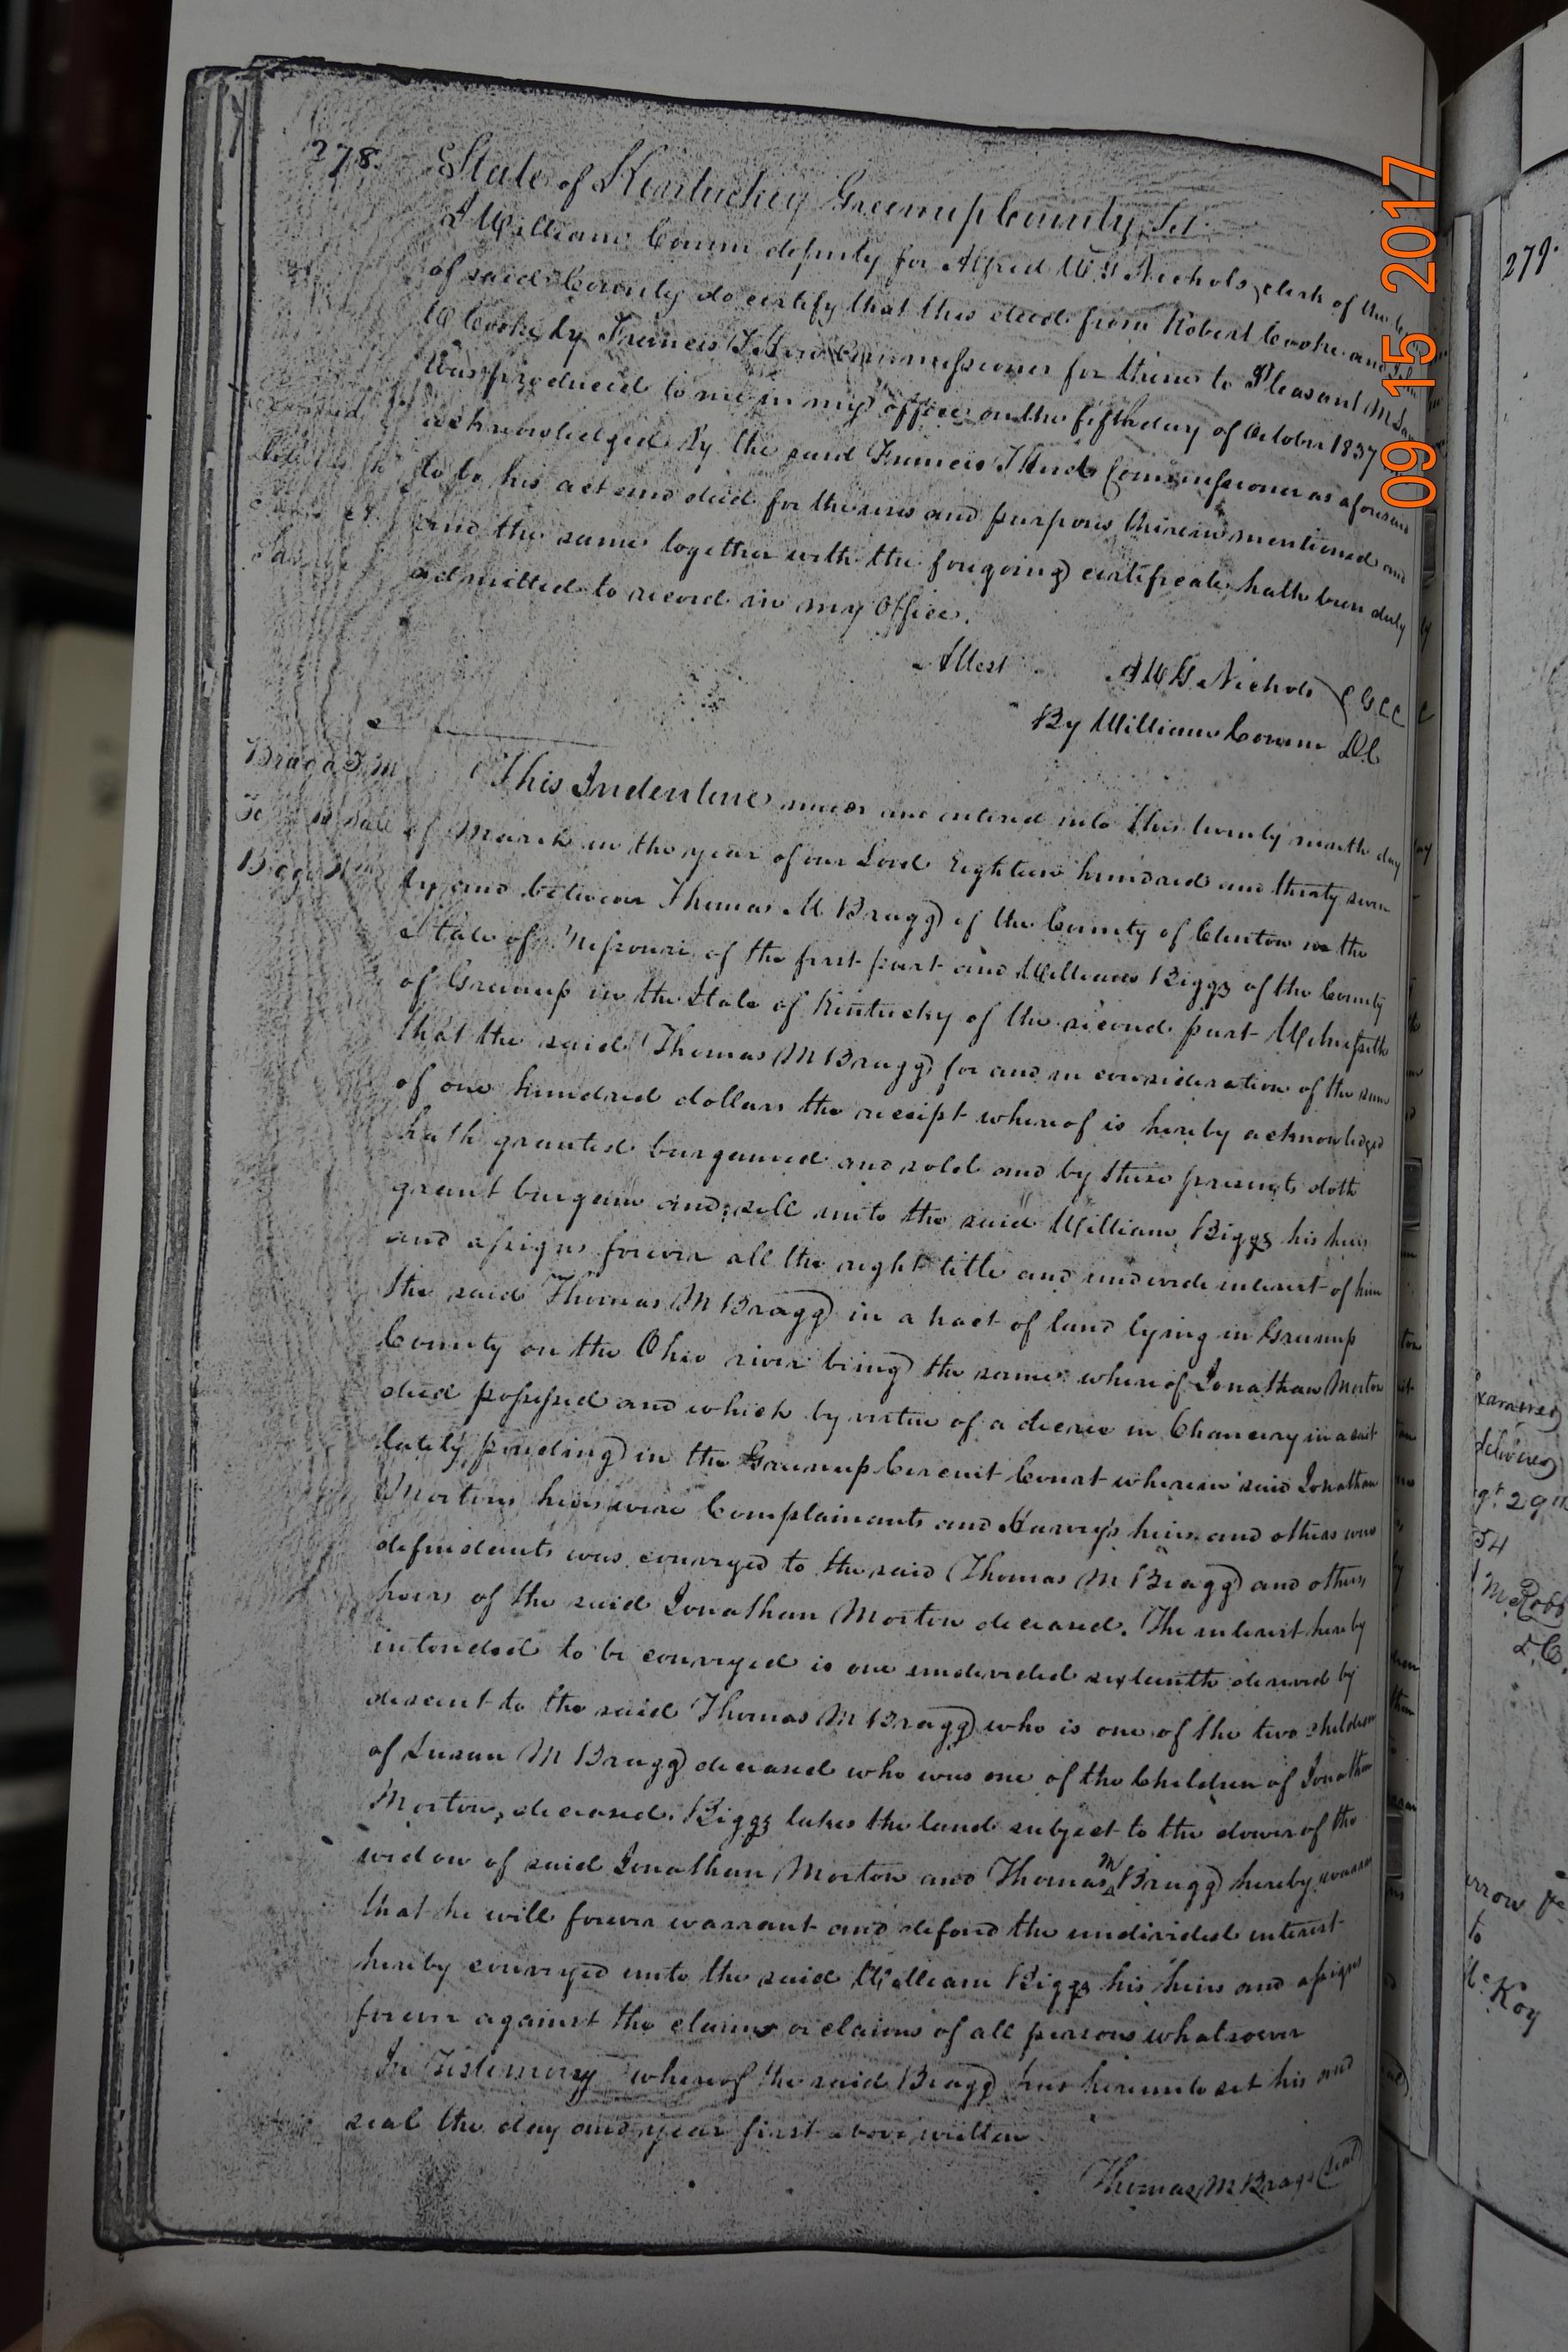 278.
State of Kentuckey Greenup County Sct.
I William Corum deputy for Alfred W G Nichols clerk of the
of said County do certify that this deed from Robert Cooke and
W Cooke by Francis T Hord Commissioner for them to Pleasant M
Was produced to me in my office on the fifth day of October 1837
acknowledged by the said Francis T Hord Commissioner as aforesaid
to be his act and deed for the uses and purposes therein mentioned and
and the same together with the foregoing certificate hath been duly
admitted to record in my Office.
Attest A W G Nichols C G C C
By William Corum D C
Bragg T. M.
To
Biggs Wm
This Indenture made and entered into this twenty ninth day
of March in the year of our Lord Eighteen hundred and thirty seven
by and between Thomas M Bragg of the County of Clinton in the
State of Missouri of the first part and William Biggs of the County
of Greenup in the State of Kentucky of the second part Witnesseth
that the said Thomas M Bragg for and in consideration of the sum
of one hundred dollars the receipt whereof is hereby acknowledged
hath granted bargained and sold and by these presents doth
grant bargain and sell unto the said William Biggs his heirs
and assigns forever all the right title and undivide interest of him
the said Thomas M Bragg in a tract of land lying in Greenup
County on the Ohio river being the same whereof Jonathan Morton
died possessed and which by virtue of a decree in Chancery in a suit
lately pending in the Greenup Circuit Court wherein said Jonathan
Mortons heirs were Complainants and Harvy's heirs and others were
defendants was conveyed to the said Thomas M Bragg and others
heirs of the said Jonathan Morton deceased. The interest hereby
intended to be conveyed is one undivided sixteenth derived by
descent to the said Thomas M Bragg who is one of the two children
of Susan M Bragg deceased who was one of the Children of Jonathan
Morton, deceased. Biggs takes the land subject to the dower of the
widow of said Jonathan Morton and Thomas M Bragg hereby
that he will forever warrant and defend the undivided interest
hereby conveyed unto the said William Biggs his heirs and assigns
forever against the claims or claims of all persons whatsoever
In Testimony whereof the said Bragg has hereunto set his and
seal the day and year first above written
Thomas M Bragg (seal)
09 15 2017
279.
Examined
delivered
54
M Robb
D. C.
to